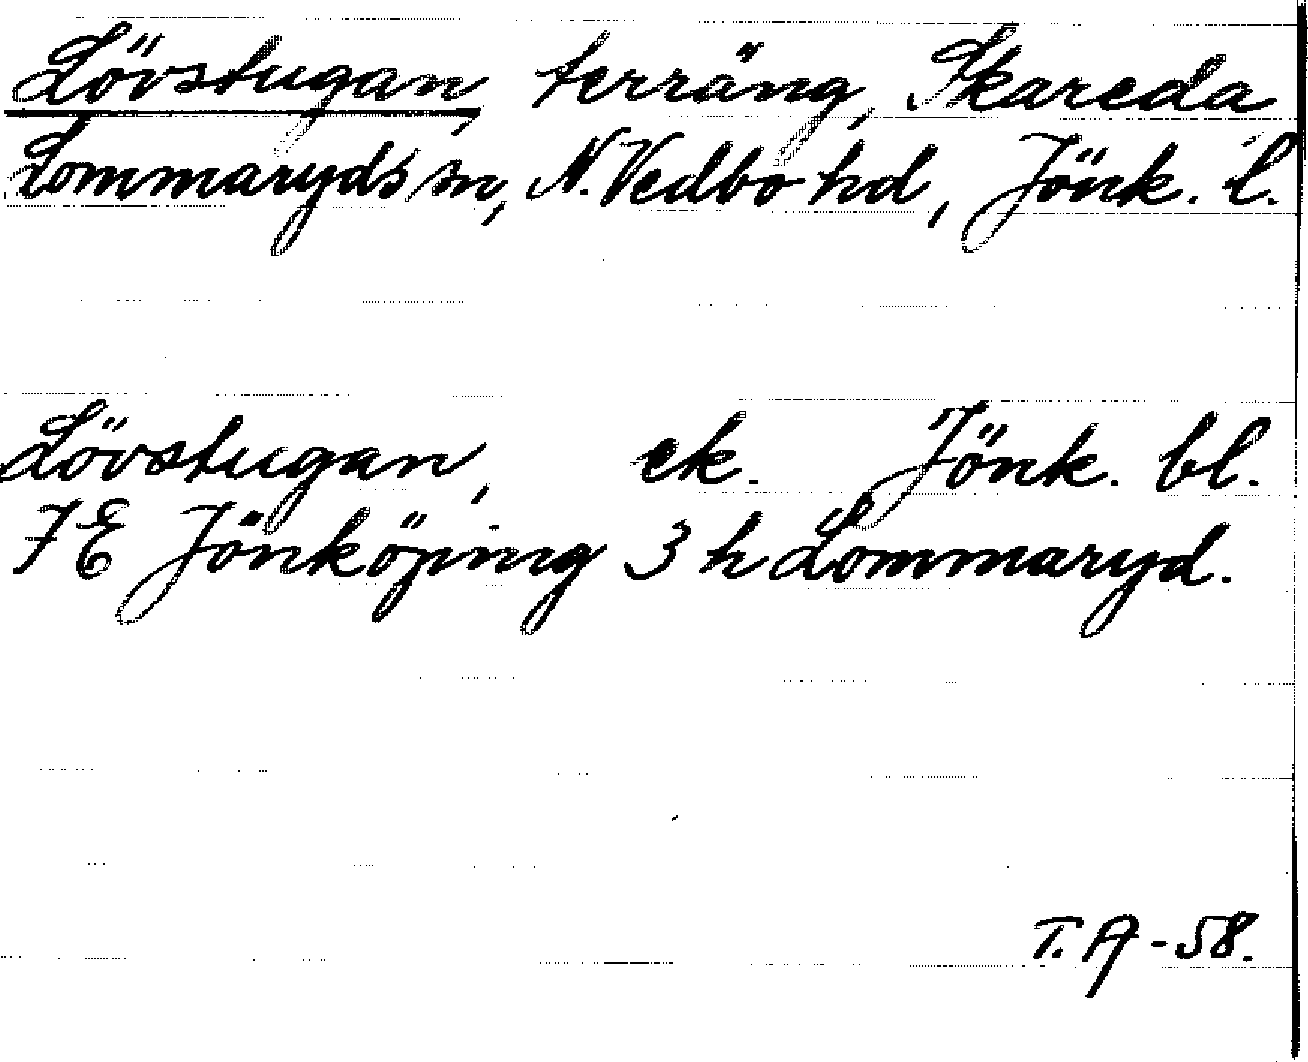 Lövstugan, terräng, Skareda
Lommaryds sn, N. Vedbo hd, Jönk. l.
Lövstugan, ek. Jönk. bl.
7E Jönköping 3 h Lommaryd.
T. A -58.